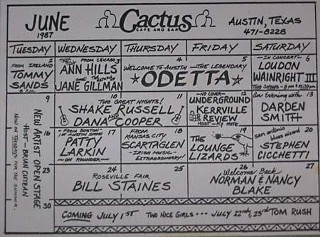 JUNE
1987
Cactus
CAFE AND BAR
AUSTIN, TEXAS
471-8228
TUESDAY WEDNESDAY THURSDAY FRIDAY SATURDAY
2
FROM IRELAND
TOMMY
SANDS
3
ANN HILLS
AND
JANE GILLMAN
WELCOME TO AUSTIN - THE LEGENDARY
ODETTA
IN CONCERT
LOUDON
WAINWRIGHT III
9
10
TWO GREAT NIGHTS!
SHAKE RUSSELL
DANA COOPER
12
UNDERGROUND
KERRVILLE
REVIEW
13
DARDEN
SMITH
16
NEW ARTIST OPEN STAGE
HOST - BRIAN CUTEAN
17
FROM BOSTON
PATTY
LARKIN
18
FROM
KANSAS CITY
SCARTAGLEN
19
THE
LOUNGE
LIZARDS
20
STEPHEN
CICCHETTI
23
24
ROSEVILLE FAIR
BILL STAINES
26
Welcome Back
NORMAN & NANCY
BLAKE
27
30
COMING JULY 1ST THE NICE GIRLS... JULY 22nd, 23rd TOM RUSH